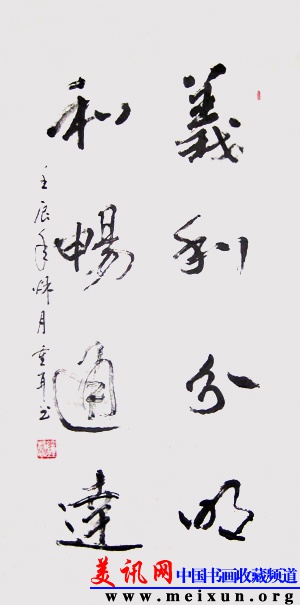 義利分明
和暢通達
壬辰年 月重耳书
美讯网 中国书画收藏频道
www.meixun.org